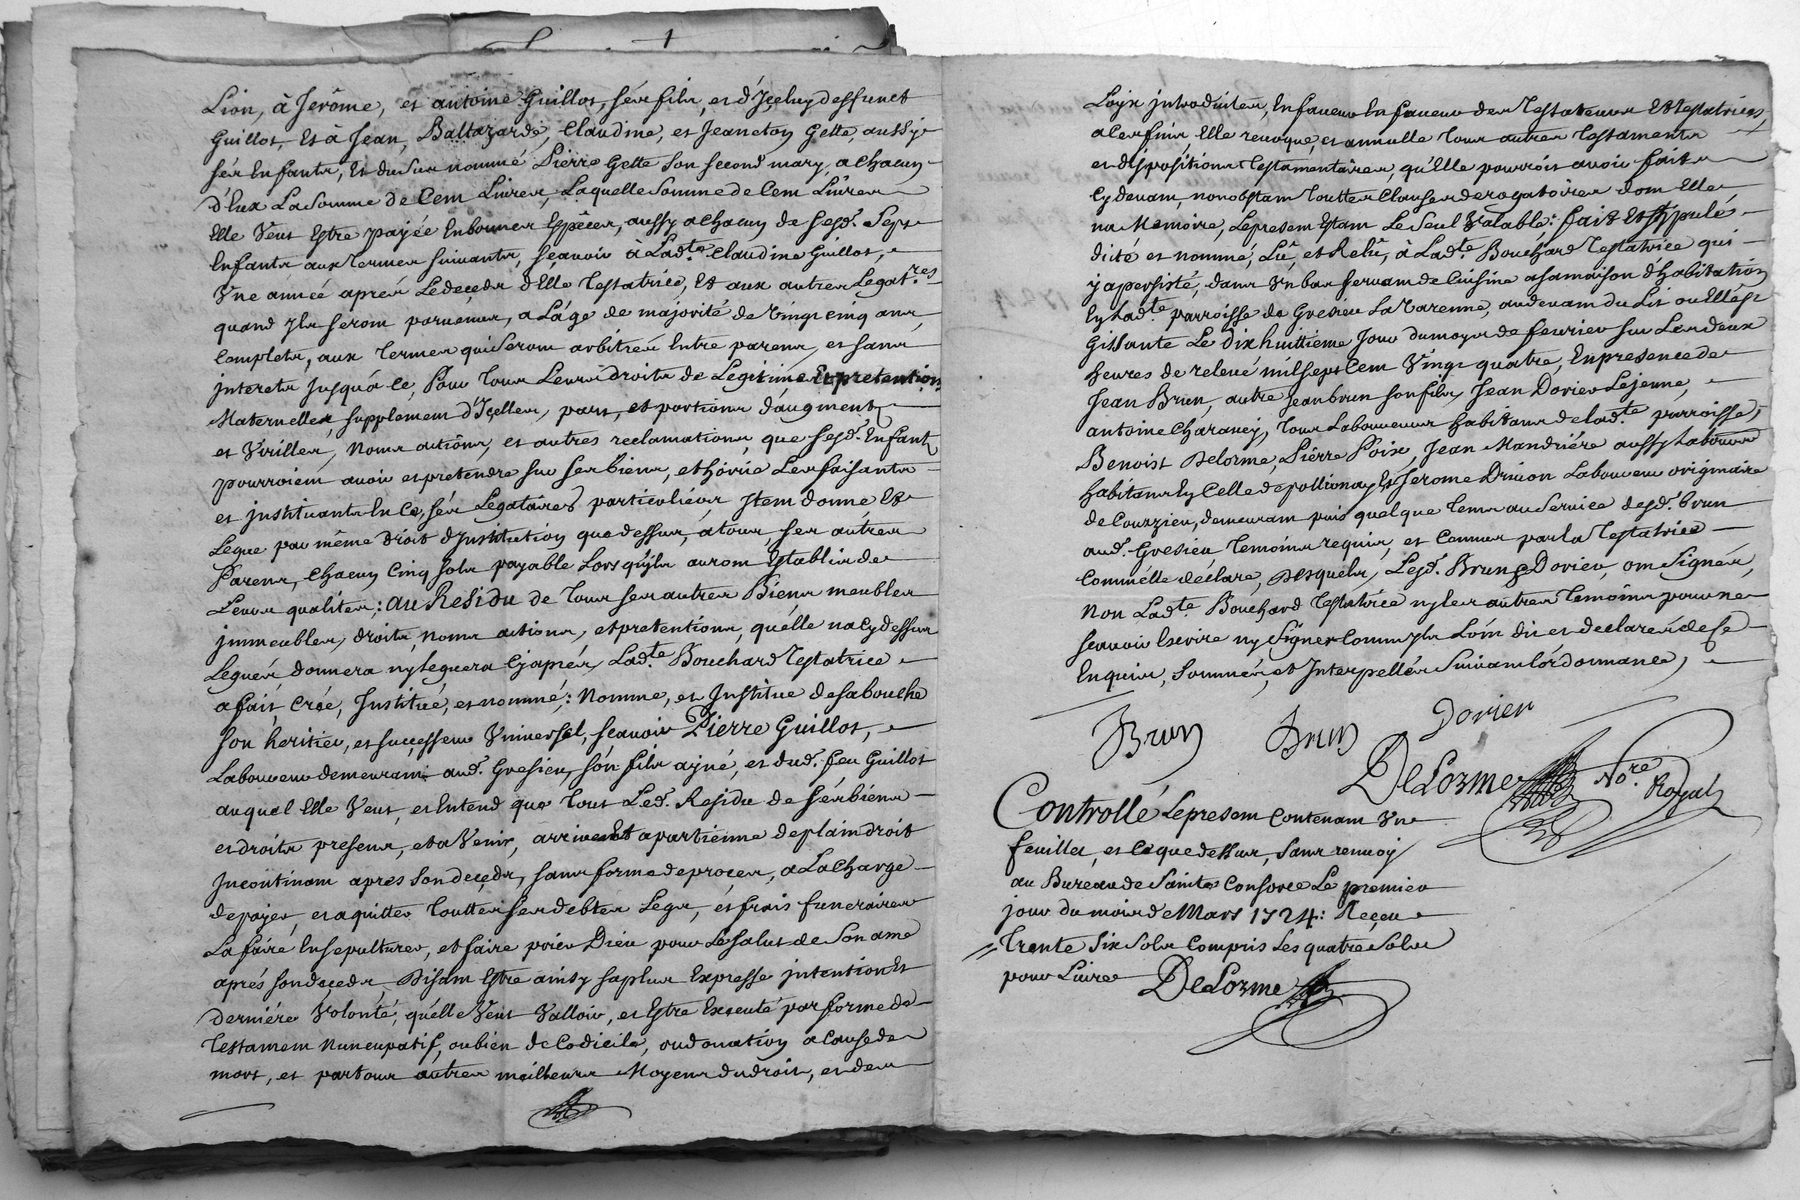 Lion, à Jerôme, et antoine Guillot, sés fils, et d'Içeluy deffunct
Guillot, Et à Jean, Baltazarde, Claudine, et Jeaneton Gette, aussy
sés Enfants, Et du sus nommé Pierre Gette son second mary, a chacun
d'Eux La somme de Cent Livres, Laquelle somme de Cent Livres
Elle Veut Estre payée En bonnes Espéces, aussy a chacun de sesd. Sept
Enfants aux termes suivants, sçavoir à Lad.te Claudine Guillot,
Une année aprés Le deçeds d'Elle Testatrice, Et aux autres Legat.res
quand Ils seront parvenus, a L'áge de májorité de Vingt cinq ans
Complets, aux termes qui seront arbitrés Entre parens, et sans
interets jusqu'á ce, Pour tous Leurs droits de Legitime Et pretention
Maternelles, supplement d'Içelles, part, et portions d'augment
et Virilles, Noms actions, et autres reclamations, que sesd. Enfants
pourroient avoir et pretendre sur ses biens, et hoirie Les faisants
et instituants En Ce, sés Legataires particuliérs, Item donne Et
Legue par même droit d'Institution que dessus, a tous, ses autres
Parens, Chacun Cinq sols payable Lors qu'Ils auront Establis de
Leurs qualites; au Residu de tous ses autres Biens meubles
immeubles, droits, noms actions, et pretentions, qu'elle n'a Cy dessus
Legués donnera ny leguera Cy aprés, Lad.te Bouchard Testatrice
a fait, Créé, Institué, et nommé; Nomme, et Institue de sa bouche
son heritier, et successeur Universel, sçavoir Pierre Guillot,
Laboureur demeurant aud. Gresieu, són fils aÿné, et dud. feu Guillot
auquel Elle Veut, et Entend que tout Led. Residu de sés biens
et droits present, et a Venir, arrive Et apartienne de plain droit
Incontinant aprés son deçeds, sans forme de procés, a La Charge
de payer, et aquitter, toutes ses debtes Legs, et frais funeraires
La faire Ensepulturer, et faire prier Dieu pour Le salut de Son ame
aprés son deçeds, Disant Estre ainsy sa plus Expresse intention Et
derniére Volonté, qu'élle Veut Valloir, et Estre Executé par forme de
Testament Nuncupatif, ou bien de Codicile, ou donation a Cause de
mort, et par tous autres meilheurs Moyens du droit, et des
Loix introduites, En faveur En faveur des Testateurs Et Testatrices,
a Ces fins, Elle revoque, et annulle tous autres Testaments
et dispositions Testamentaires, qu'Elle pourroit avoir faits
Cy devant, nonobstant toutes Clauses derogatoires dont Elle
na Memoire, Le present Estant Le seul Valable; fait Et stipulé
dicté et nommé, Lû, et Relû, à Lad.te Bouchard Testatrice qui
y a persisté, dans Un bas servant de Cuisine a sa maison d'habitation
En Lad.te parroisse de Gresieu La Varenne, au devant du Lit ou Elle Est
Gissante Le dix huittieme Jour du moys de fevrier sur Les deux
heures de relevé mil sept Cent Vingt quatre, En presence de
Jean Brun, autre Jean brun son fils, Jean Dorier Lejeune,
antoine Charancy, tous Laboureurs habitans de lad.te parroisse,
Benoist Delorme, Pierre Poix, Jean Mandriére aussy Laboureurs
habitans En Celle de pollionay Et Jerome Drivon Laboureur originaire
de Courzieu, demeurant puis quelque tems au service desd. brun
aud. Gresieu temoins requis, et Connus par la Testatrice
Comm'élle déclare, Desquels, Lesd. Brun & Dorier, ont Signés,
Non Lad.te Bouchard Testatrice ny les autres temoins pour ne
sçavoir Escrire ny Signer Comm'Ils L'ont dit et declarés de Ce
Enquis, Sommés, et Interpellés Suivant L'órdonnance,
Brun Brun Dorier
DeLorme No.re Royal
Controllé Le present Contenant Une
feuillet, et Ce que dessus, sans renvoy
au Bureau de Sainte Consorce Le premier
jour du mois de Mars 1724: Reçeu
trente Six Sols Compris Les quatre Sols
pour Livre DeLorme